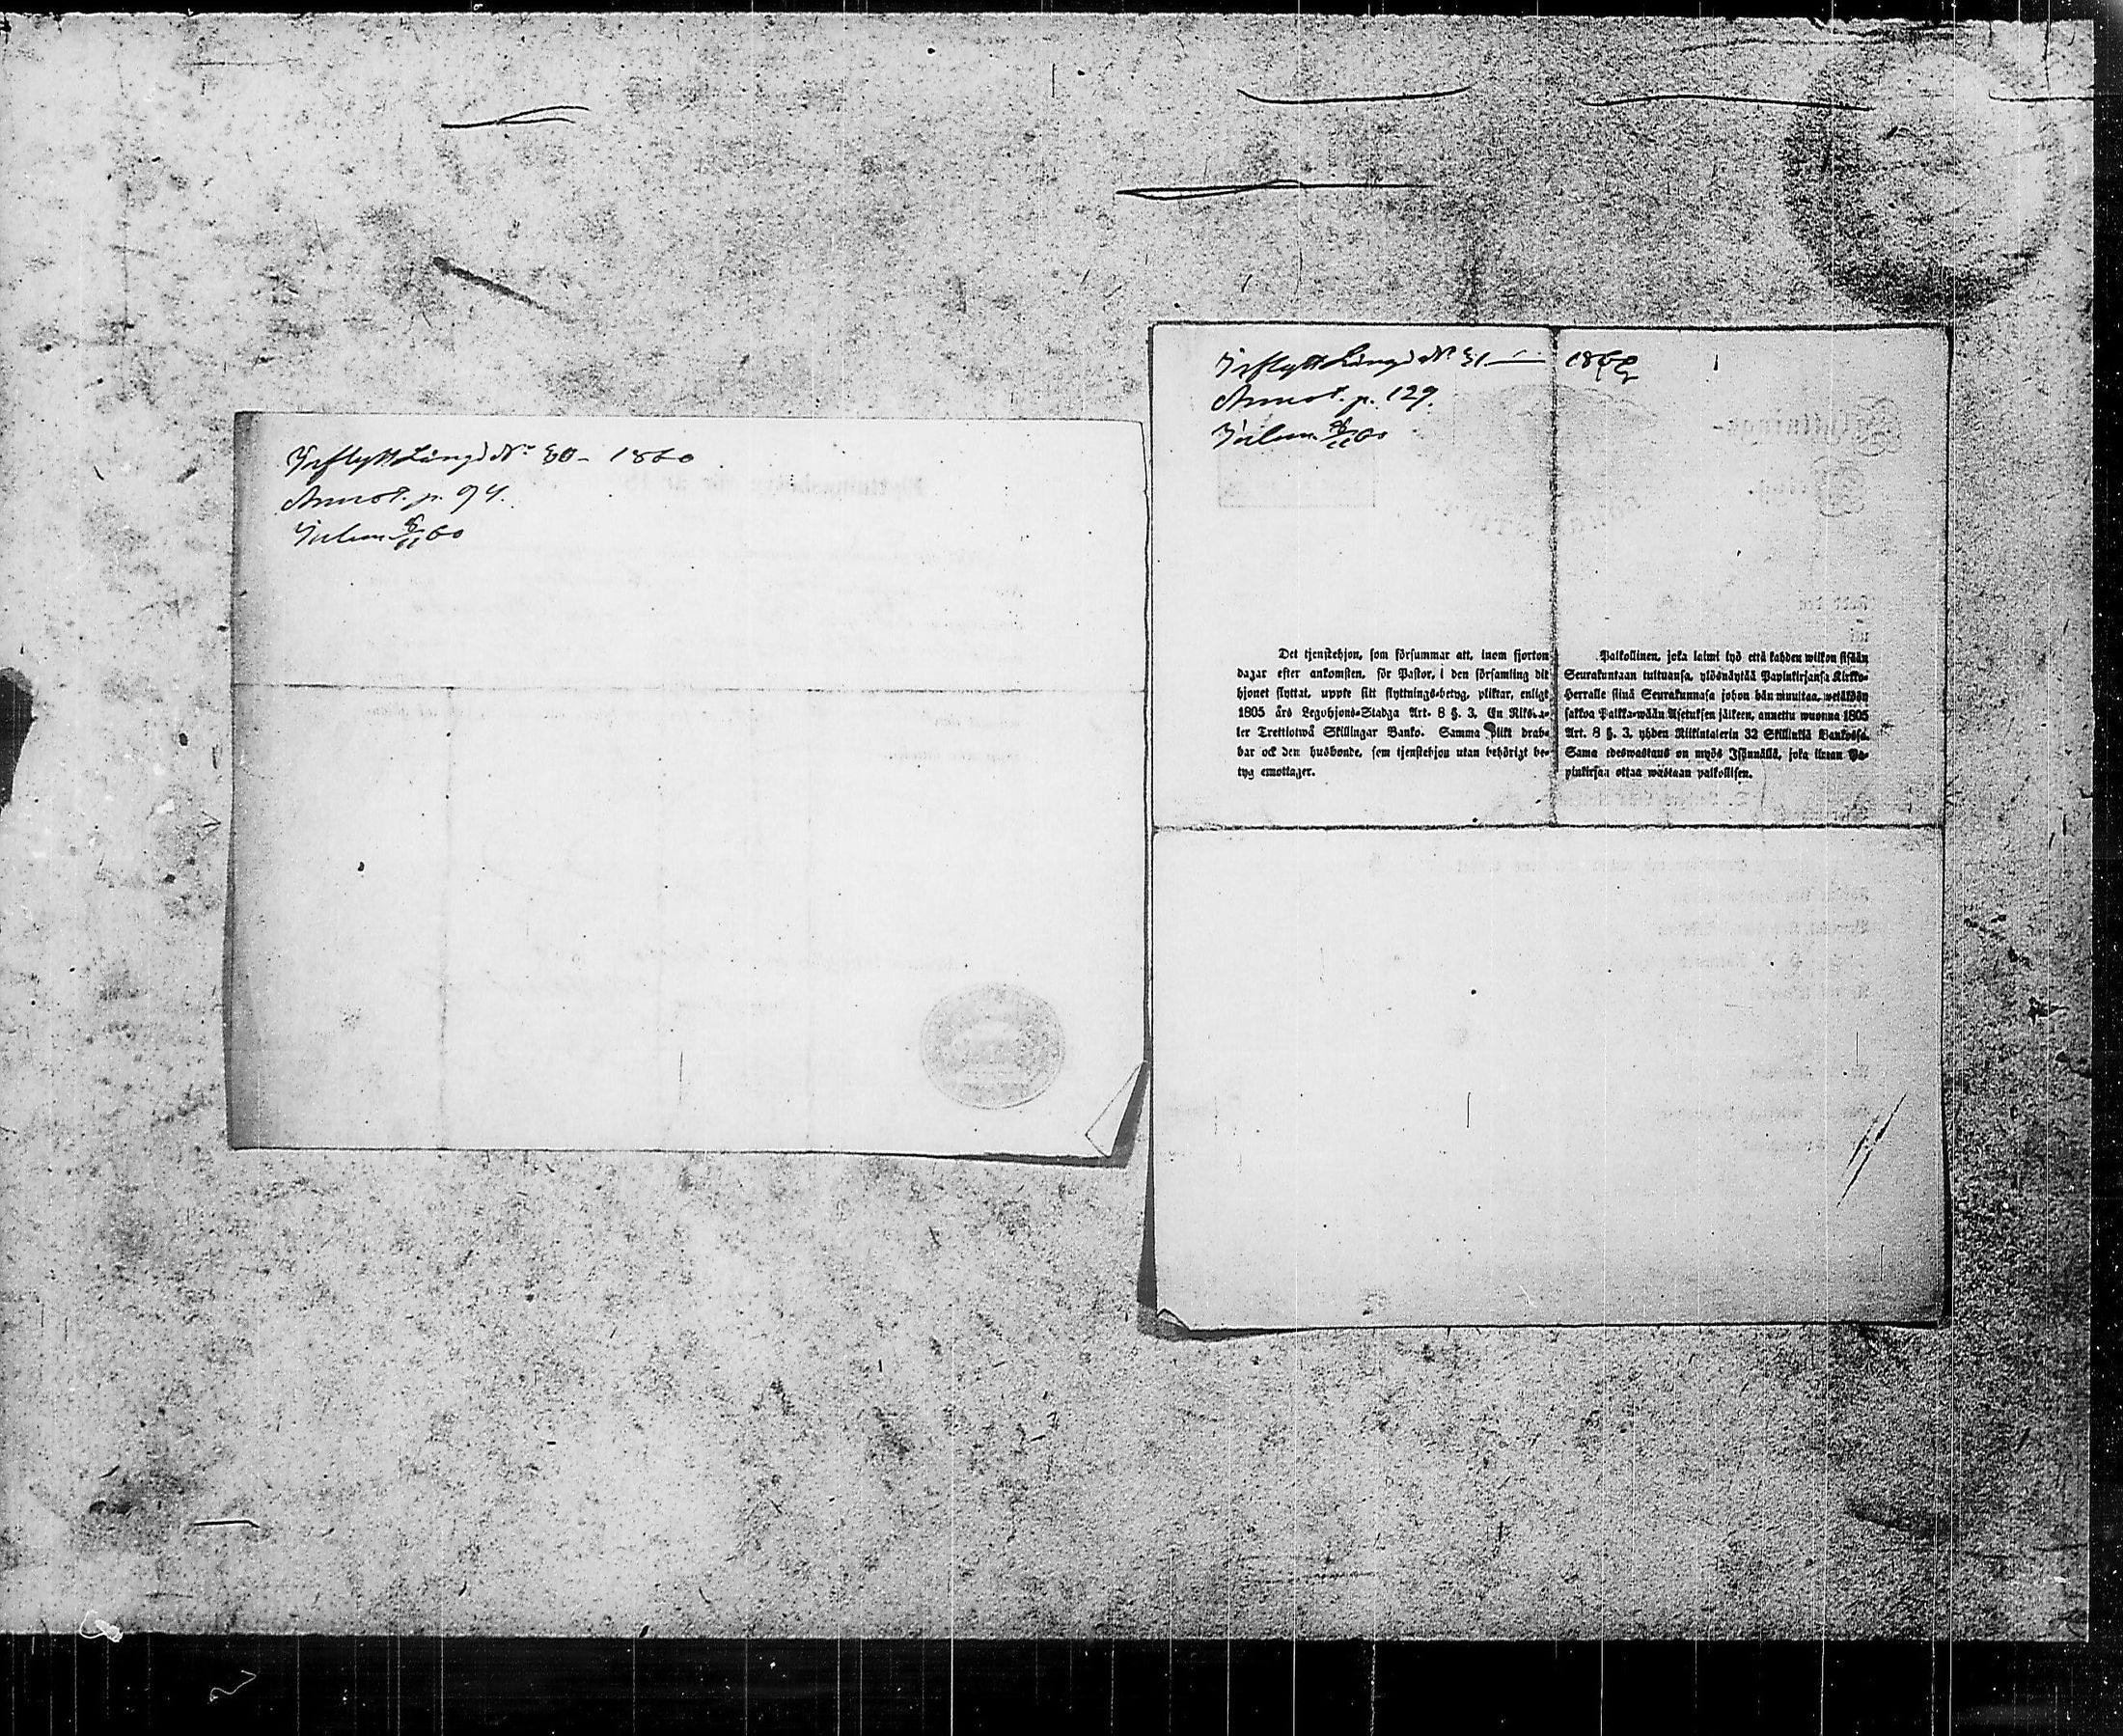 Inflyttlängd No 30 - 1860
Annot. p. 94.
60
Inflyttlängd No 31 — 1860
Annot. p. 129.
60
Det tjenstehjon, som försummar att, inom fjorton
dagar efter ankomsten, för Pastor, i den församling dit
hjonet flyttat, uppte sitt flyttnings-betyg, pliktar, enligt
1805 års Legohjons-Stadga Art. 8 §. 3, En Riksda-
ler Trettiotwå Skillingar Banko. Samma plikt drab-
bar ock den husbonde, som tjenstehjon utan behörigt be-
tyg emottager.
Palkollinen, joka laimi lyö että kahden wiikon sisään
Seurakuntaan tultuansa, ylösnäytää Papinkirjansa Kirkko-
Herralle siinä Seurakunnasa johon hän muuttaa, wetäkään
sakkoa Palkka-wään Asetuksen jälkeen, annettu wuonna 1805
Art. 8 §. 3, yhden Riikintalerin 32 Skillinkiä Bankosa.
Sama edeswastaus on myös Isännällä, joka ilman Pa-
pinkirjaa ottaa wastaan palkollisen.